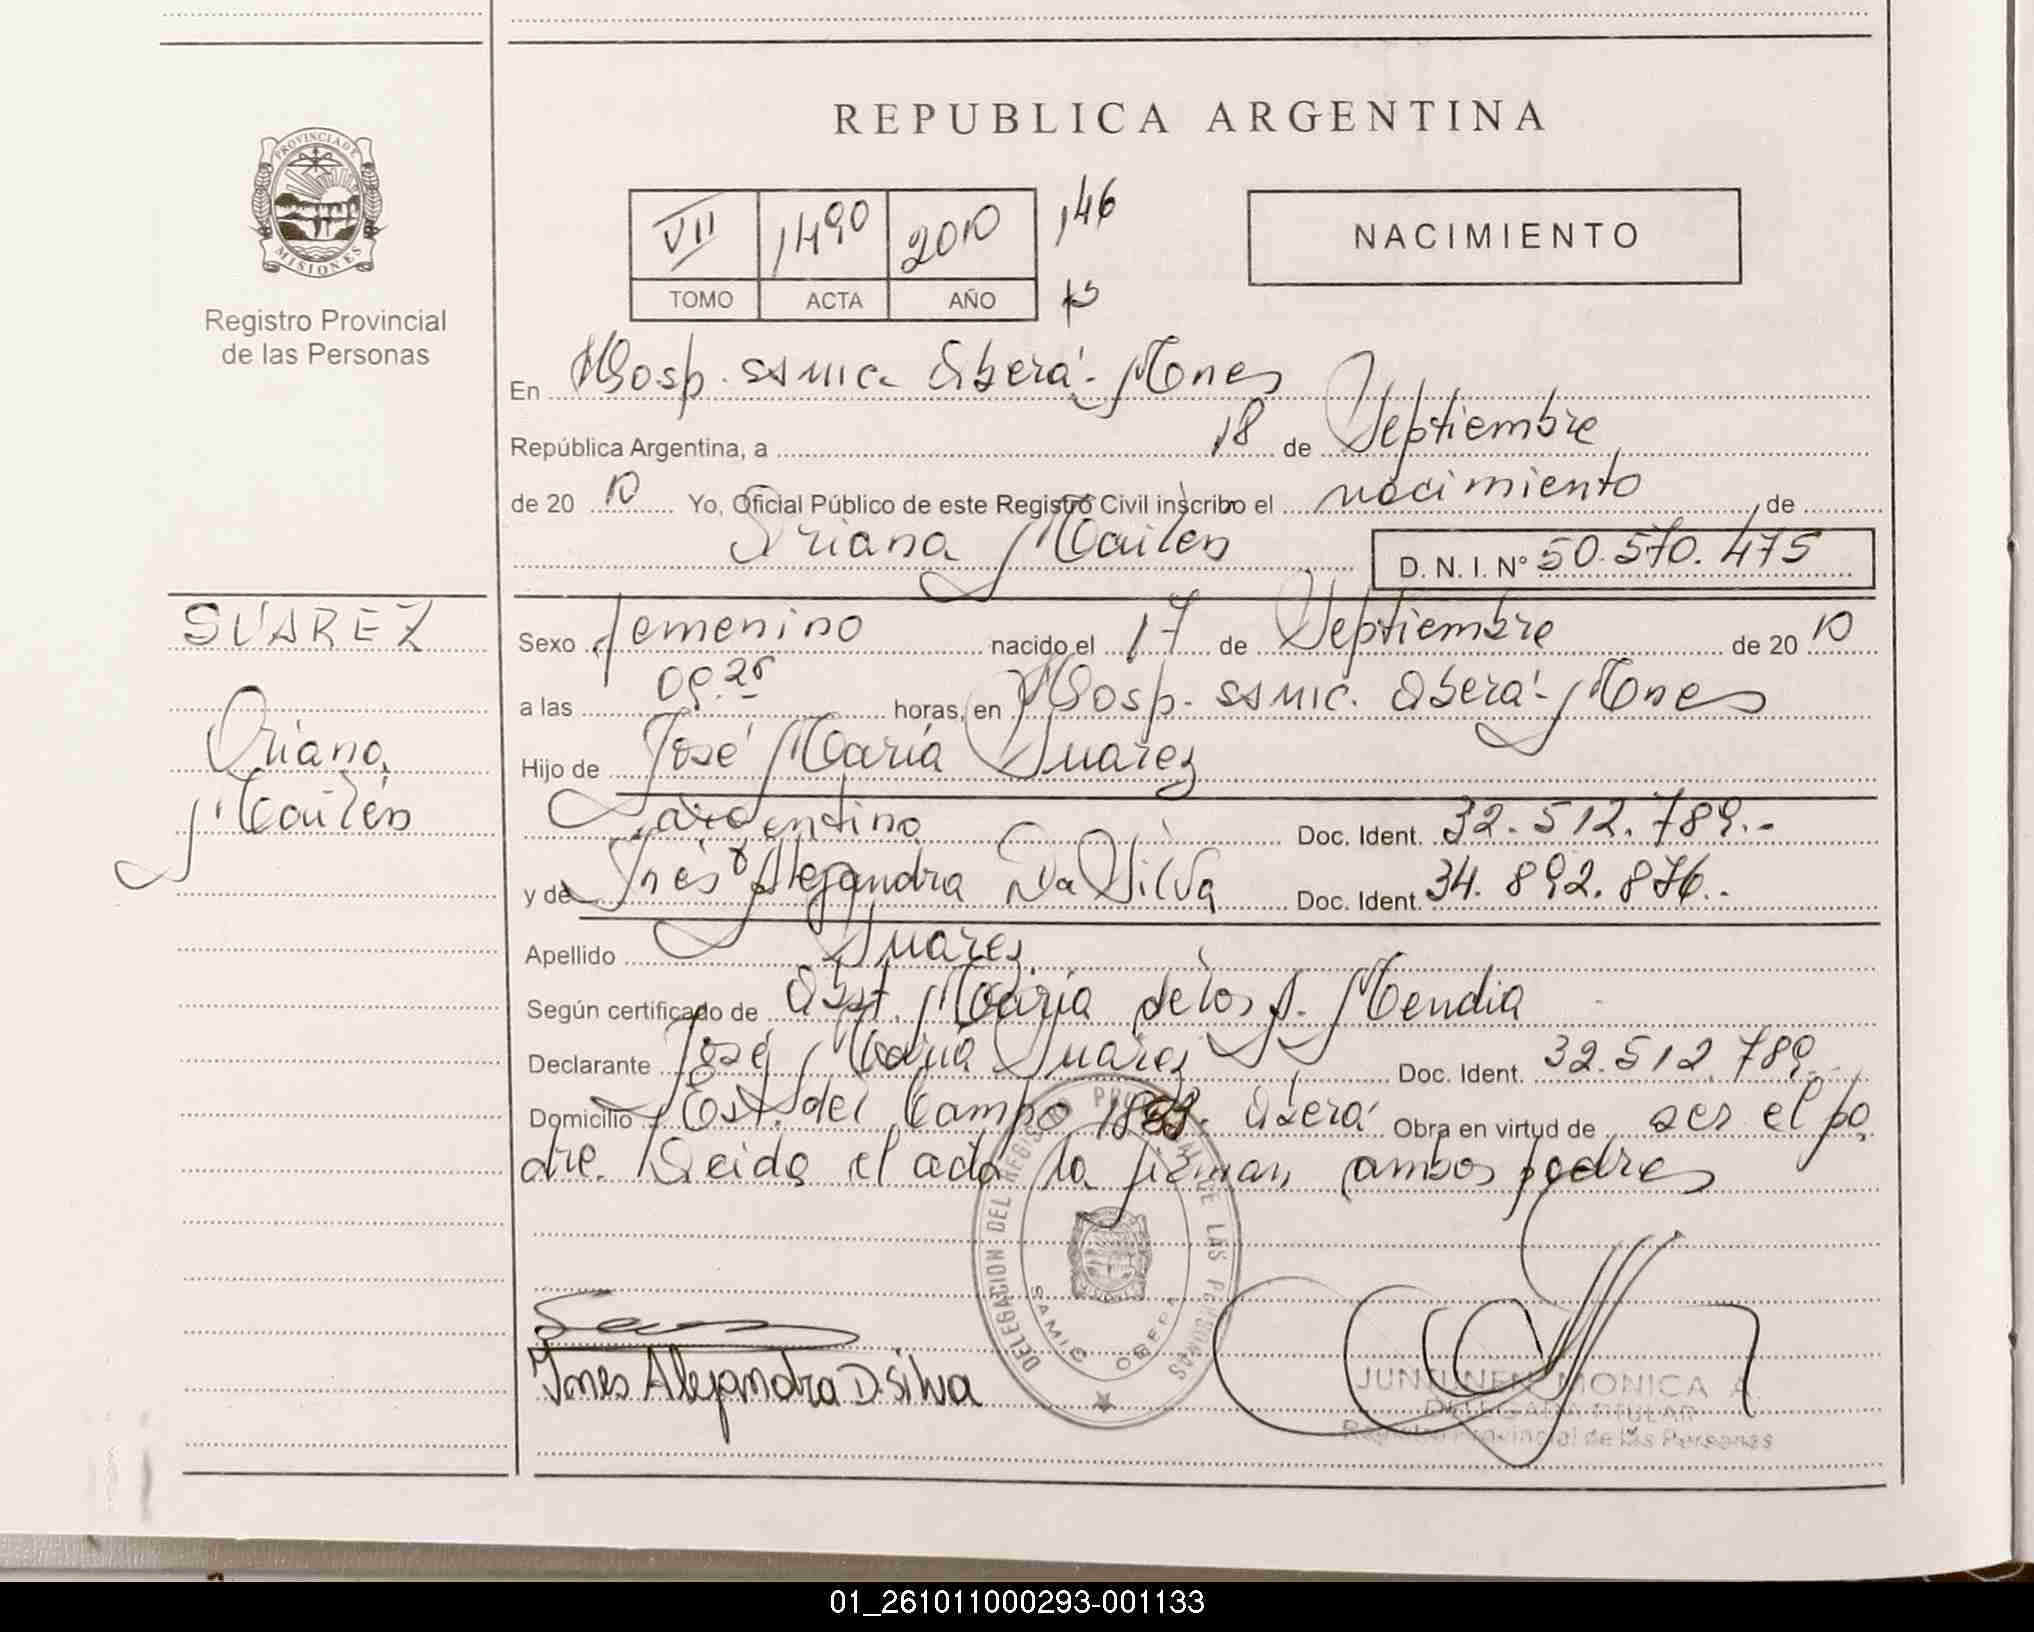 REPUBLICA ARGENTINA
PROVINCIA DE MISIONES
Registro Provincial
de las Personas
VII 1490 2010 146
TOMO ACTA AÑO
NACIMIENTO
En Hosp. SAMIC. Oberá - Mnes
República Argentina, a 18 de Septiembre
de 20 10 Yo, Oficial Público de este Registro Civil inscribo el nacimiento de
Oriana Mailén D. N. I. Nº 50.570.475
SUAREZ
Oriana
Mailén
Sexo femenino nacido el 17 de Septiembre de 20 10
a las horas, en Hosp. SAMIC. Oberá - Mnes
Hijo de José María Suarez
argentino Doc. Ident. 32.512.789.-
y de Inés Alejandra Da Silva Doc. Ident. 34.892.876.-
Apellido Suarez
Según certificado de Obst. María de los A. Mendia
Declarante José María Suarez Doc. Ident. 32.512.789.-
Domicilio Est. del Campo Oberá Obra en virtud de ser el pa
dre. Leida el acta la firman ambos padres
DELEGACION DEL REGISTRO PROVINCIAL DE LAS PERSONAS
SAMIC OBERA
Ines Alejandra D.silva
JUNTUNEN MONICA A.
DELEGADA TITULAR
Registro Provincial de las Personas
01_261011000293-001133